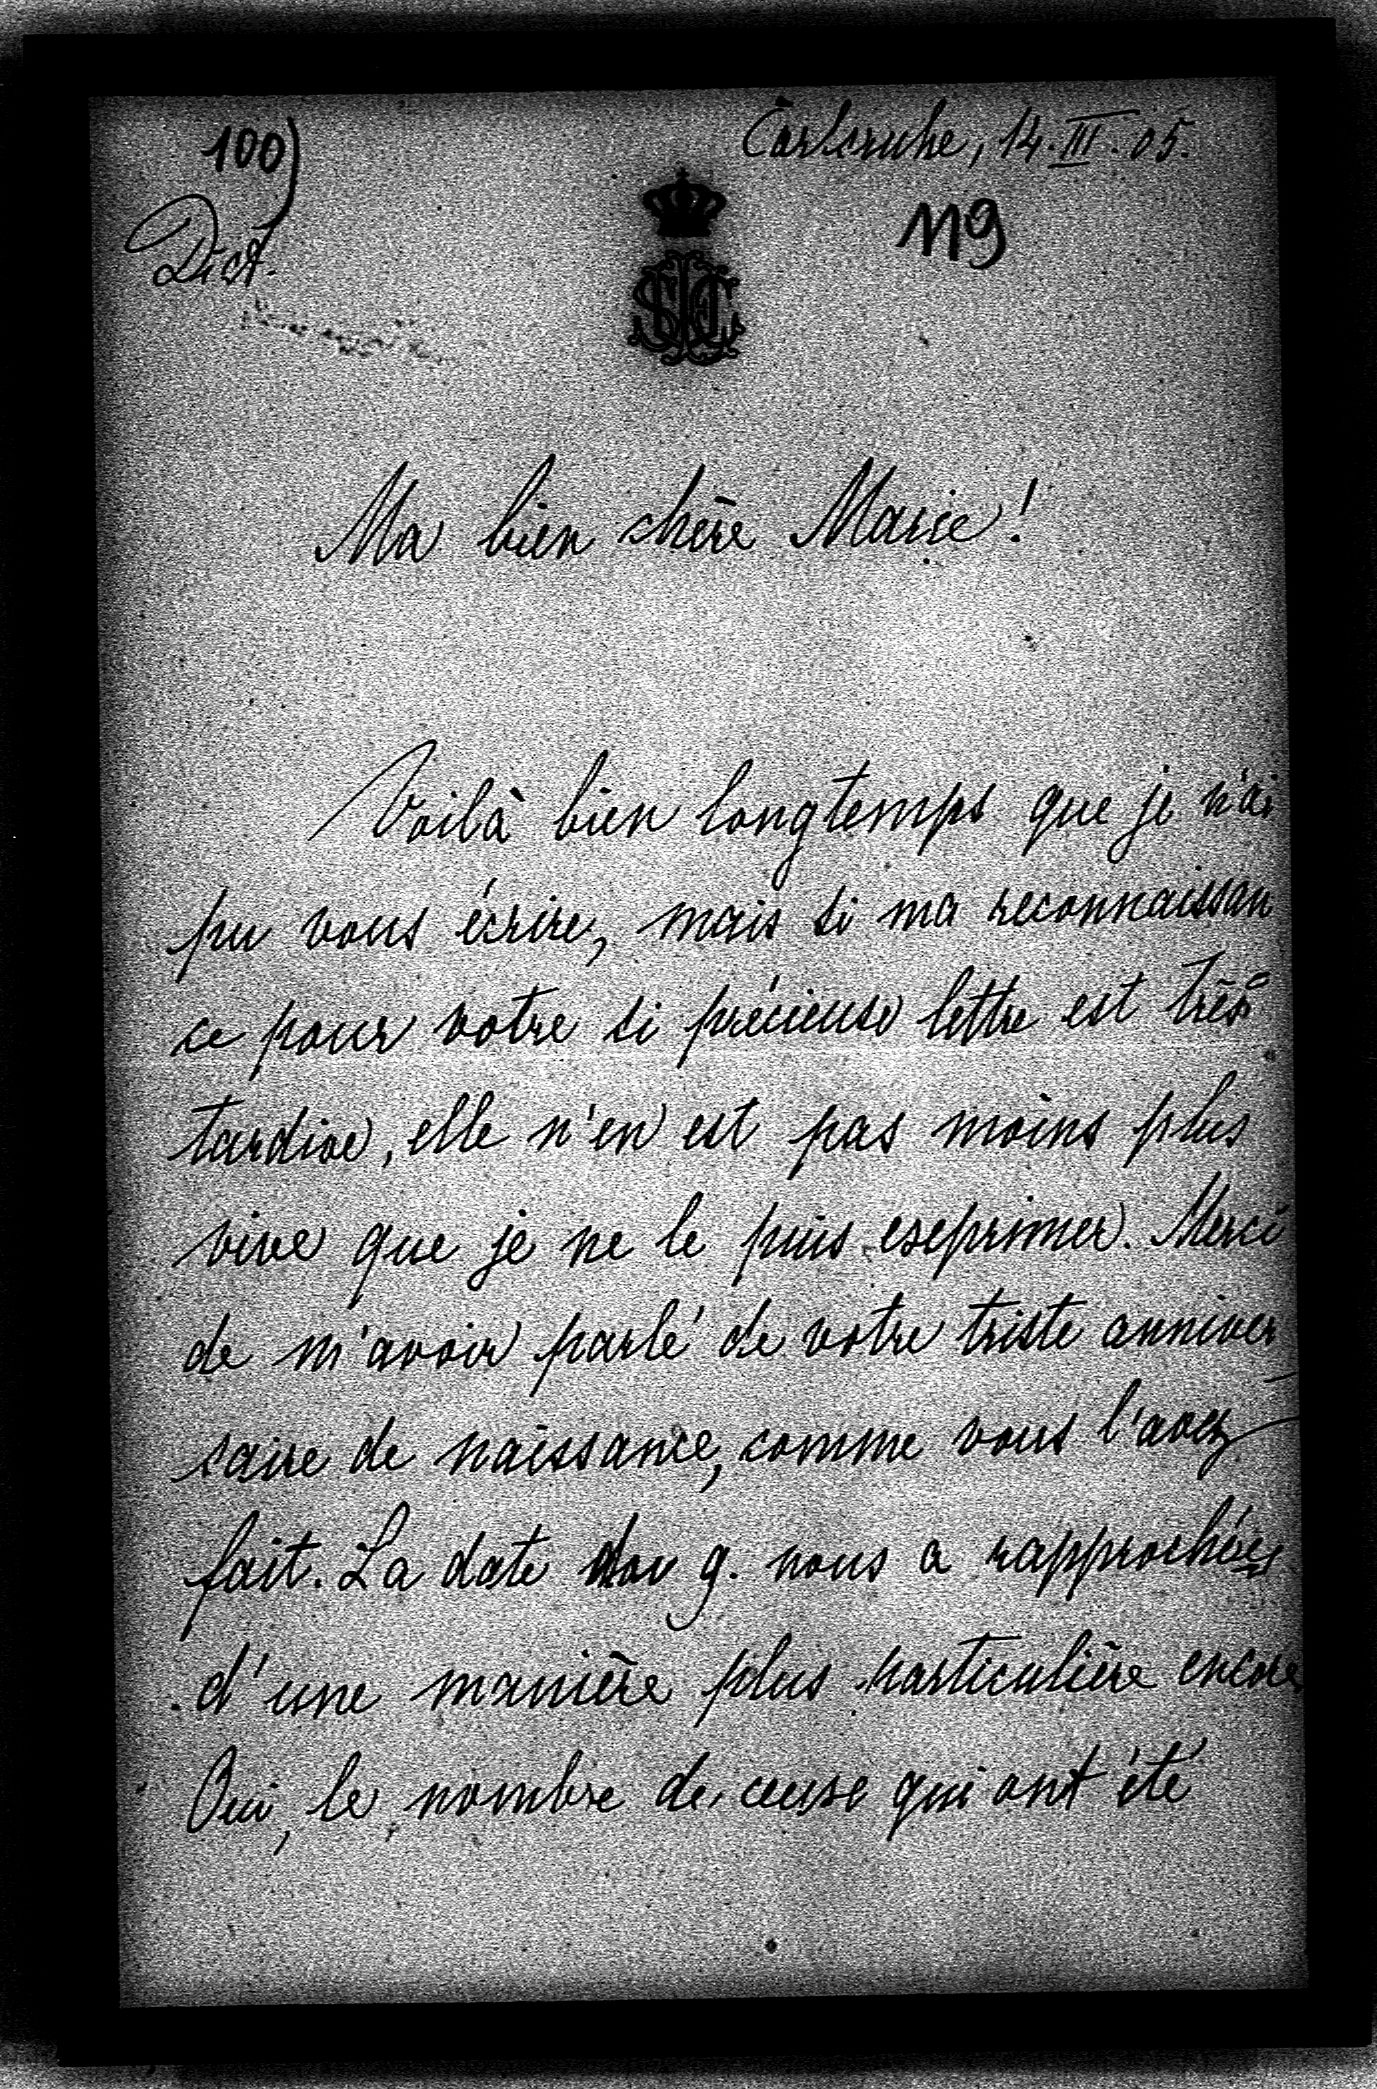 Carlsruhe, 14. III. 05.
100)
119
Dict.
Ma bien chère Marie!
Voilà bien longtemps que je n'ai
pu vous écrire, mais si ma reconnaissan
ce pour votre si précieuse lettre est très
tardive, elle n'en est pas moins plus
vive que je ne le puis exprimer. Merci
de m'avoir parlé de votre triste anniver
saire de naissance, comme vous l'avez
fait. La date du 9. nous a rapprochées
d'une manière plus particulière encore
Oui, le nombre de ceux qui ont été